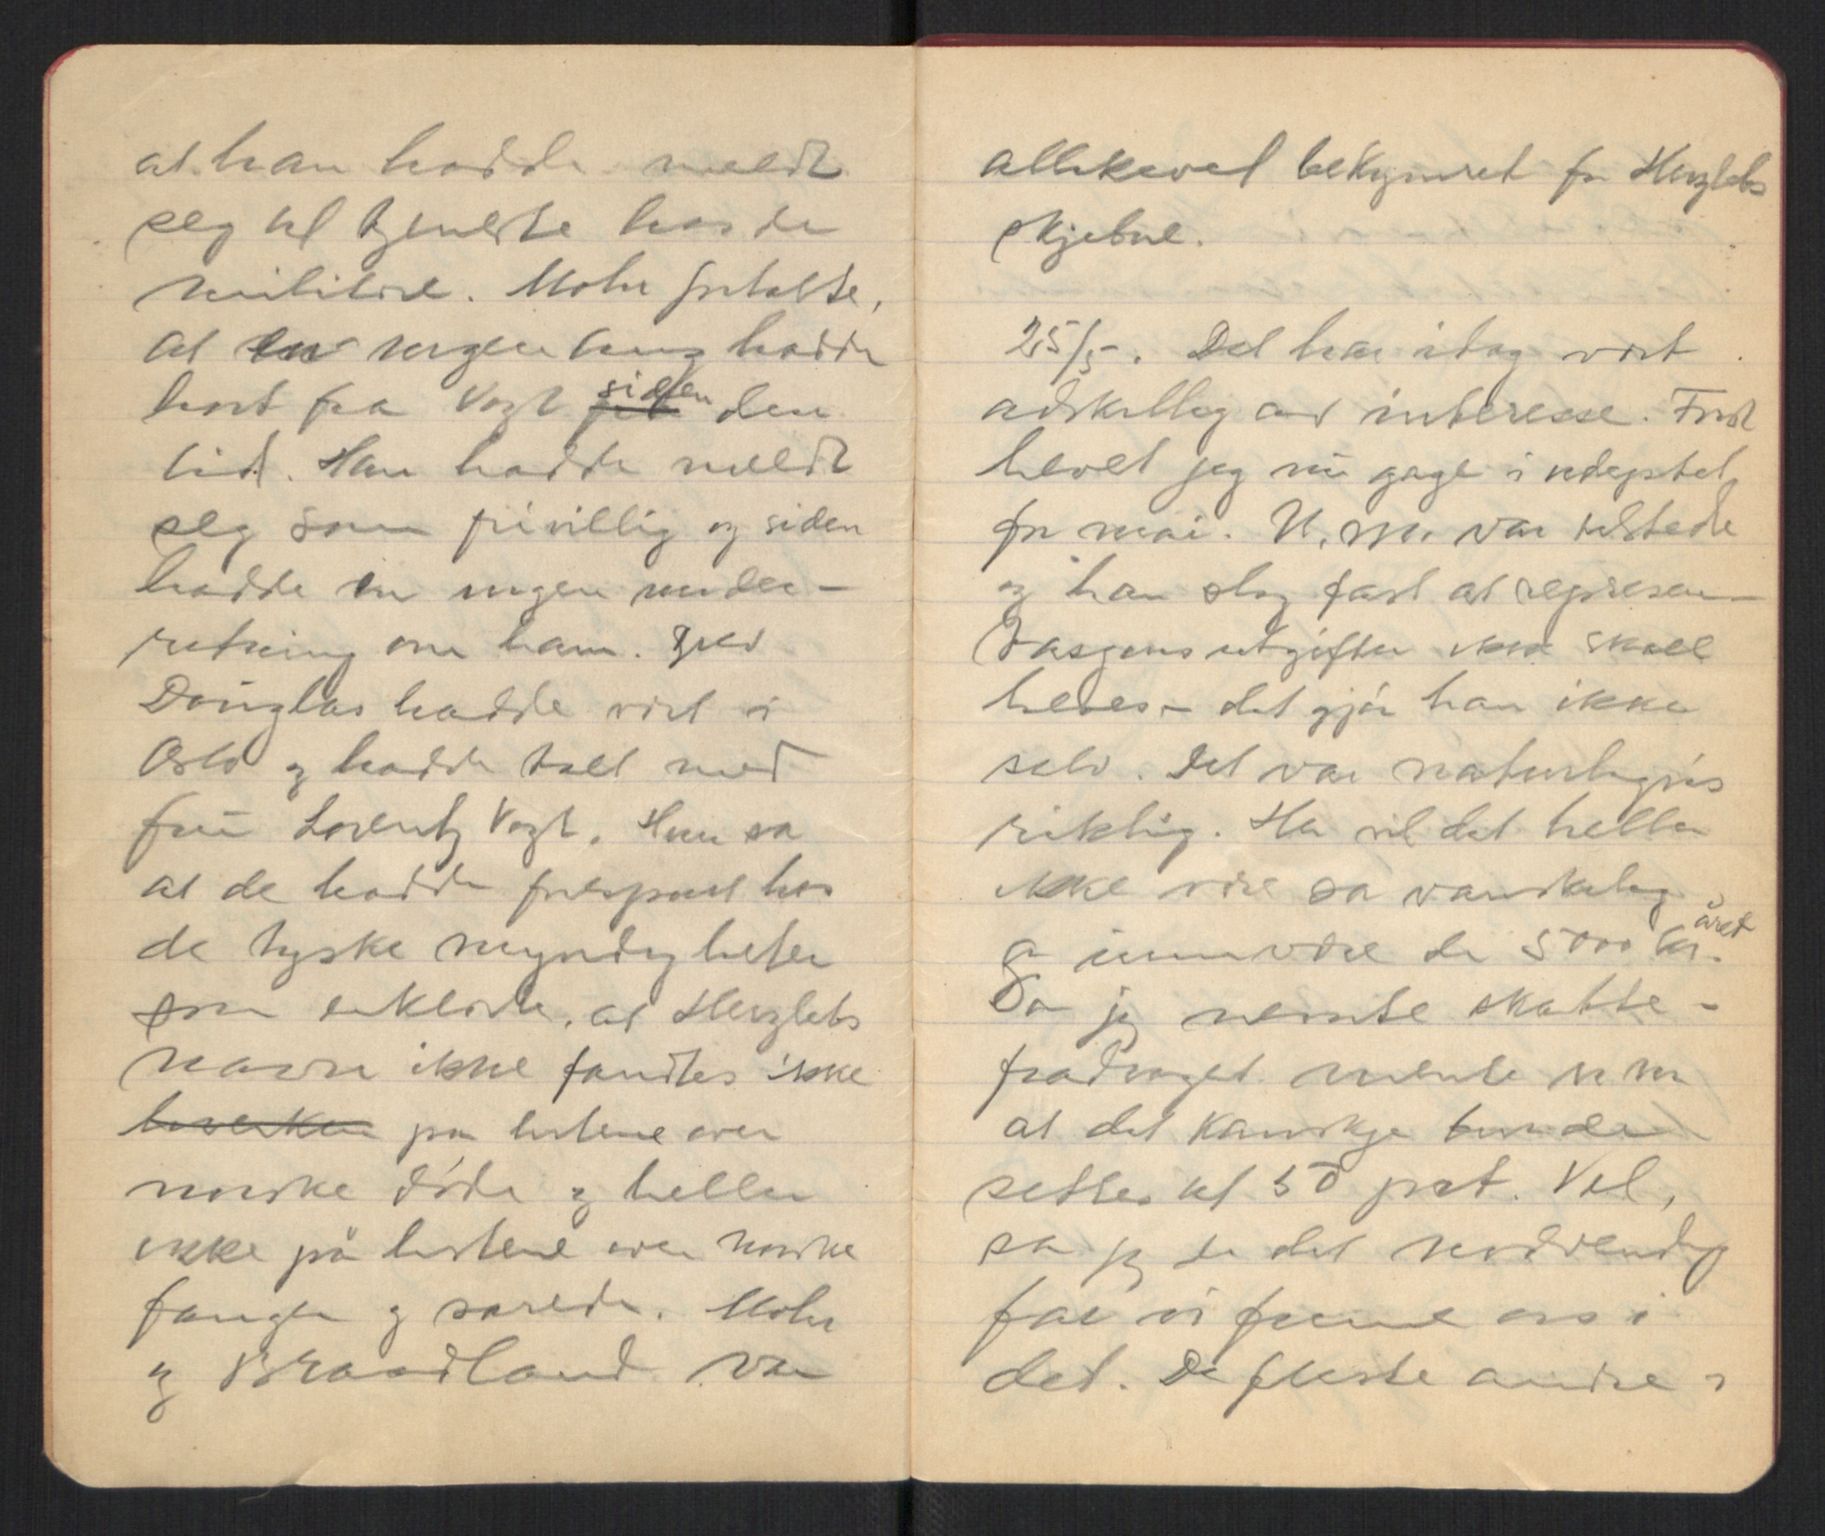 at han hadde meldt
seg til tjeneste hos de
militære. Mohr fortalte,
at en ingenting hadde
hørt fra Vogt siden den
tid. Han hadde meldt
seg som frivillig og siden
hadde en ingen under-
retning om ham. Grev
Douglas hadde vært i
Oslo og hadde talt med
fru Lorentz Vogt. Hun sa
at de hadde forespurt hos
de tyske myndigheter
som erklærte, at Herzlebs
navn ikke fandtes ikke
hverken på listene over
norske døde og heller
ikke på listene over norske
fanger og sårede. Mohr
og Braadland var
allikevel bekymret for Herzlebs
skjebne.
25/5. Det har idag vært
adskillig av interesse. Først
hevet jeg min gage i udeptet
for mai. U.m. var tilstede
og han slog fast at represen-
tasjonsutgifter ikke skall
heves – det gjør han ikke
selv. Det var naturligvis
riktig. Her vil det heller
ikke være så vanskelig
å innvære de 5000 kr. året
Da jeg nevnte skatte-
fradraget mente um
at det kanskje burde
settes til 50 pct. Vel,
sa jeg er det nødvendig
får vi finne oss i
det. De fleste andre i